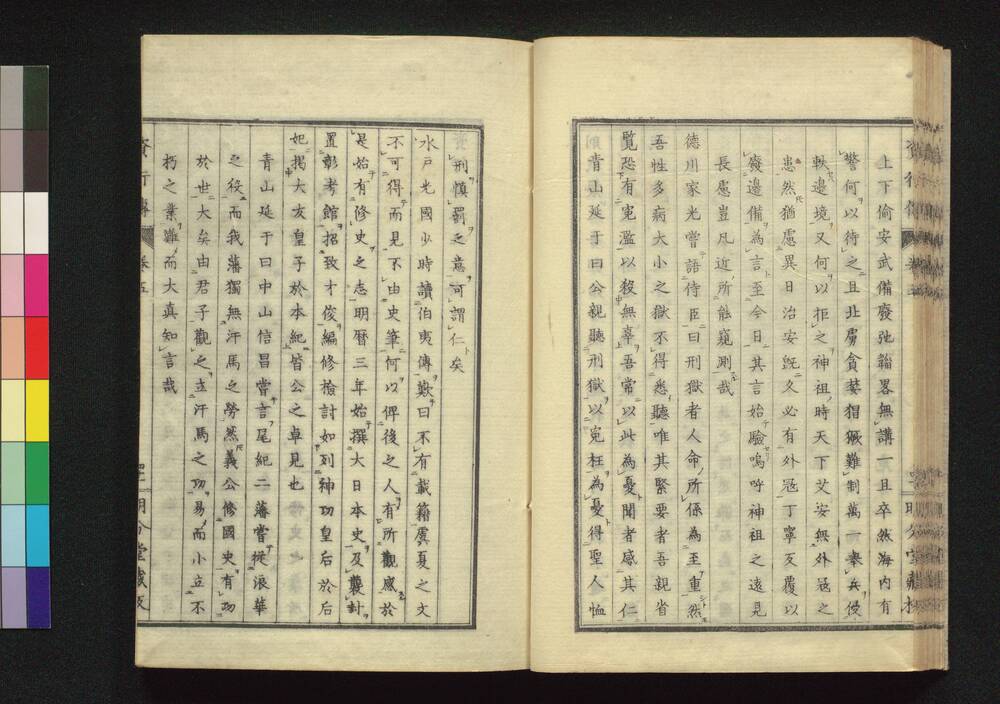 上下偷安武備廢弛韜畧無講一旦卒然海内有
警何以待之且北虜貪婪猖獗難制萬一擧兵侵
軼邊境又何以拒之神祖時天下艾安無外冦之
患然猶慮異日治安旣久必有外冦丁寧反覆以
廢邊備為言至今日其言始驗嗚呼神祖之遠見
長慮豈凡近所能窺測哉
德川家光嘗語侍臣曰刑獄者人命所係為至重然
吾性多病大小之獄不得悉聽唯其緊要者吾親省
覽恐有寃濫以殺無辜吾常以此為憂聞者感其仁
青山延于曰公親聽刑獄以寃枉為憂得聖人恤
刑慎罰之意可謂仁矣
水戸光國少時讀伯夷傳歎曰不有載籍虞夏之文
不可得而見不由史筆何以俾後之人有所觀感於
是始有修史之志明曆三年始撰大日本史及
置彰考館招致才俊編修檢討如列神功皇后於后
妃揭大友皇子於本紀皆公之卓見也
青山延于曰中山信昌嘗言尾紀二藩嘗從浪華
之役而我藩獨無汗馬之勞然義公修國史有功
於世大矣由君子觀之立汗馬之功易而小立不
朽之業難而大真知言哉